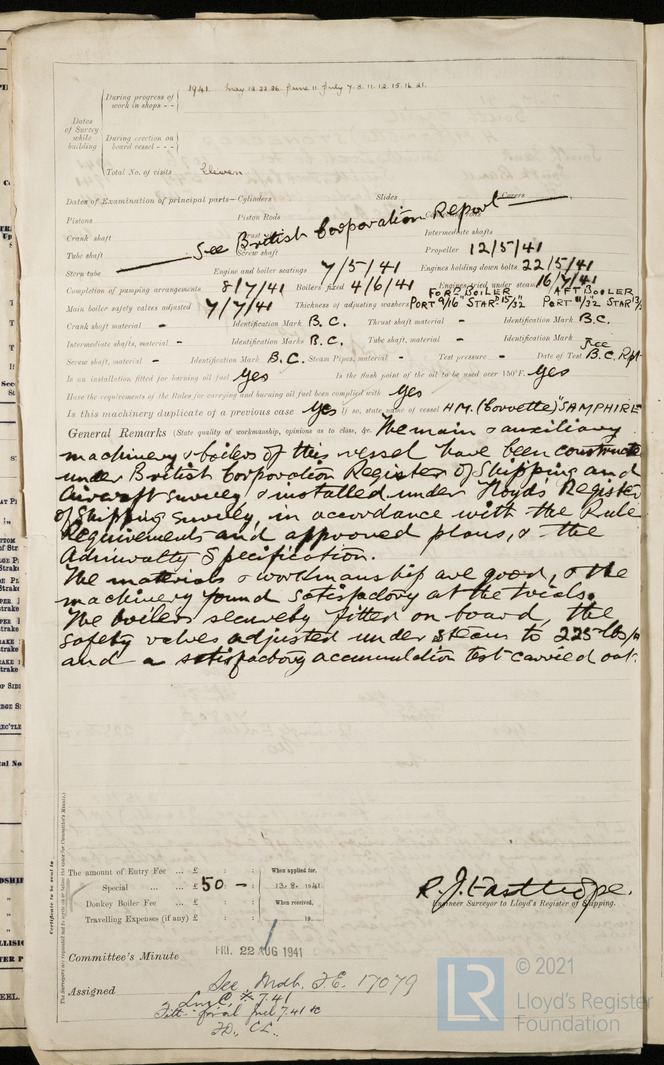 During progress of work in shops - -
1941. May 12. 22. 26. June 11. July 7. 8. 11. 12. 15. 16. 21.
Dates of Survey while building
During erection on board vessel - - -
Total No. of visits Eleven
Dates of Examination of principal parts—Cylinders Slides Covers
Pistons Piston Rods
Crank shaft Intermediate shafts
See British Corporation Report
Tube shaft Screw shaft Propeller 12/5/41
Stern tube Engine and boiler seatings 7/5/41 Engines holding down bolts 22/5/41
Completion of pumping arrangements 8/7/41 Boilers fixed 4/6/41 Engines tried under steam 16/7/41
FORD BOILER AFT BOILER
Main boiler safety valves adjusted 7/7/41 Thickness of adjusting washers PORT 9/16" STARD 15/32" PORT 11/32 STAR
Crank shaft material - Identification Mark B.C. Thrust shaft material - Identification Mark B.C.
Intermediate shafts, material - Identification Marks B.C. Tube shaft, material - Identification Mark -
Screw shaft, material - Identification Mark B.C. Steam Pipes, material - Test pressure - Date of Test See B.C. Rpt.
Is an installation fitted for burning oil fuel Yes Is the flash point of the oil to be used over 150°F. Yes
Have the requirements of the Rules for carrying and burning oil fuel been complied with Yes
Is this machinery duplicate of a previous case Yes If so, state name of vessel H.M. (Corvette) "SAMPHIRE
General Remarks (State quality of workmanship, opinions as to class, &c. The main & auxiliary
machinery & boilers of this vessel have been constructe
under British Corporation Register of Shipping and
Aircraft survey, & installed under Lloyds Register
of Shipping survey, in accordance with the Rule
Requirements and approved plans, & the
Admiralty Specification.
The materials & workmanship are good, & the
machinery found satisfactory at the trials.
The boilers securely fitted on board, the
safety valves adjusted under steam to 225 lbs/
and a satisfactory accumulation test carried out.
Certificate to be sent to
The amount of Entry Fee ... £ : : When applied for,
Special ... ... £ 50 - : 13.8.1941
Donkey Boiler Fee ... £ : : When received,
Travelling Expenses (if any) £ : : 19
R. J. Easthope.
Engineer Surveyor to Lloyd's Register of Shipping.
Committee's Minute FRI. 22 AUG 1941
Assigned See Mdb. F.E. 17079
7.41
Fitted for oil fuel 7.41
FD, CL.
LR
© 2021
Lloyd's Register
Foundation